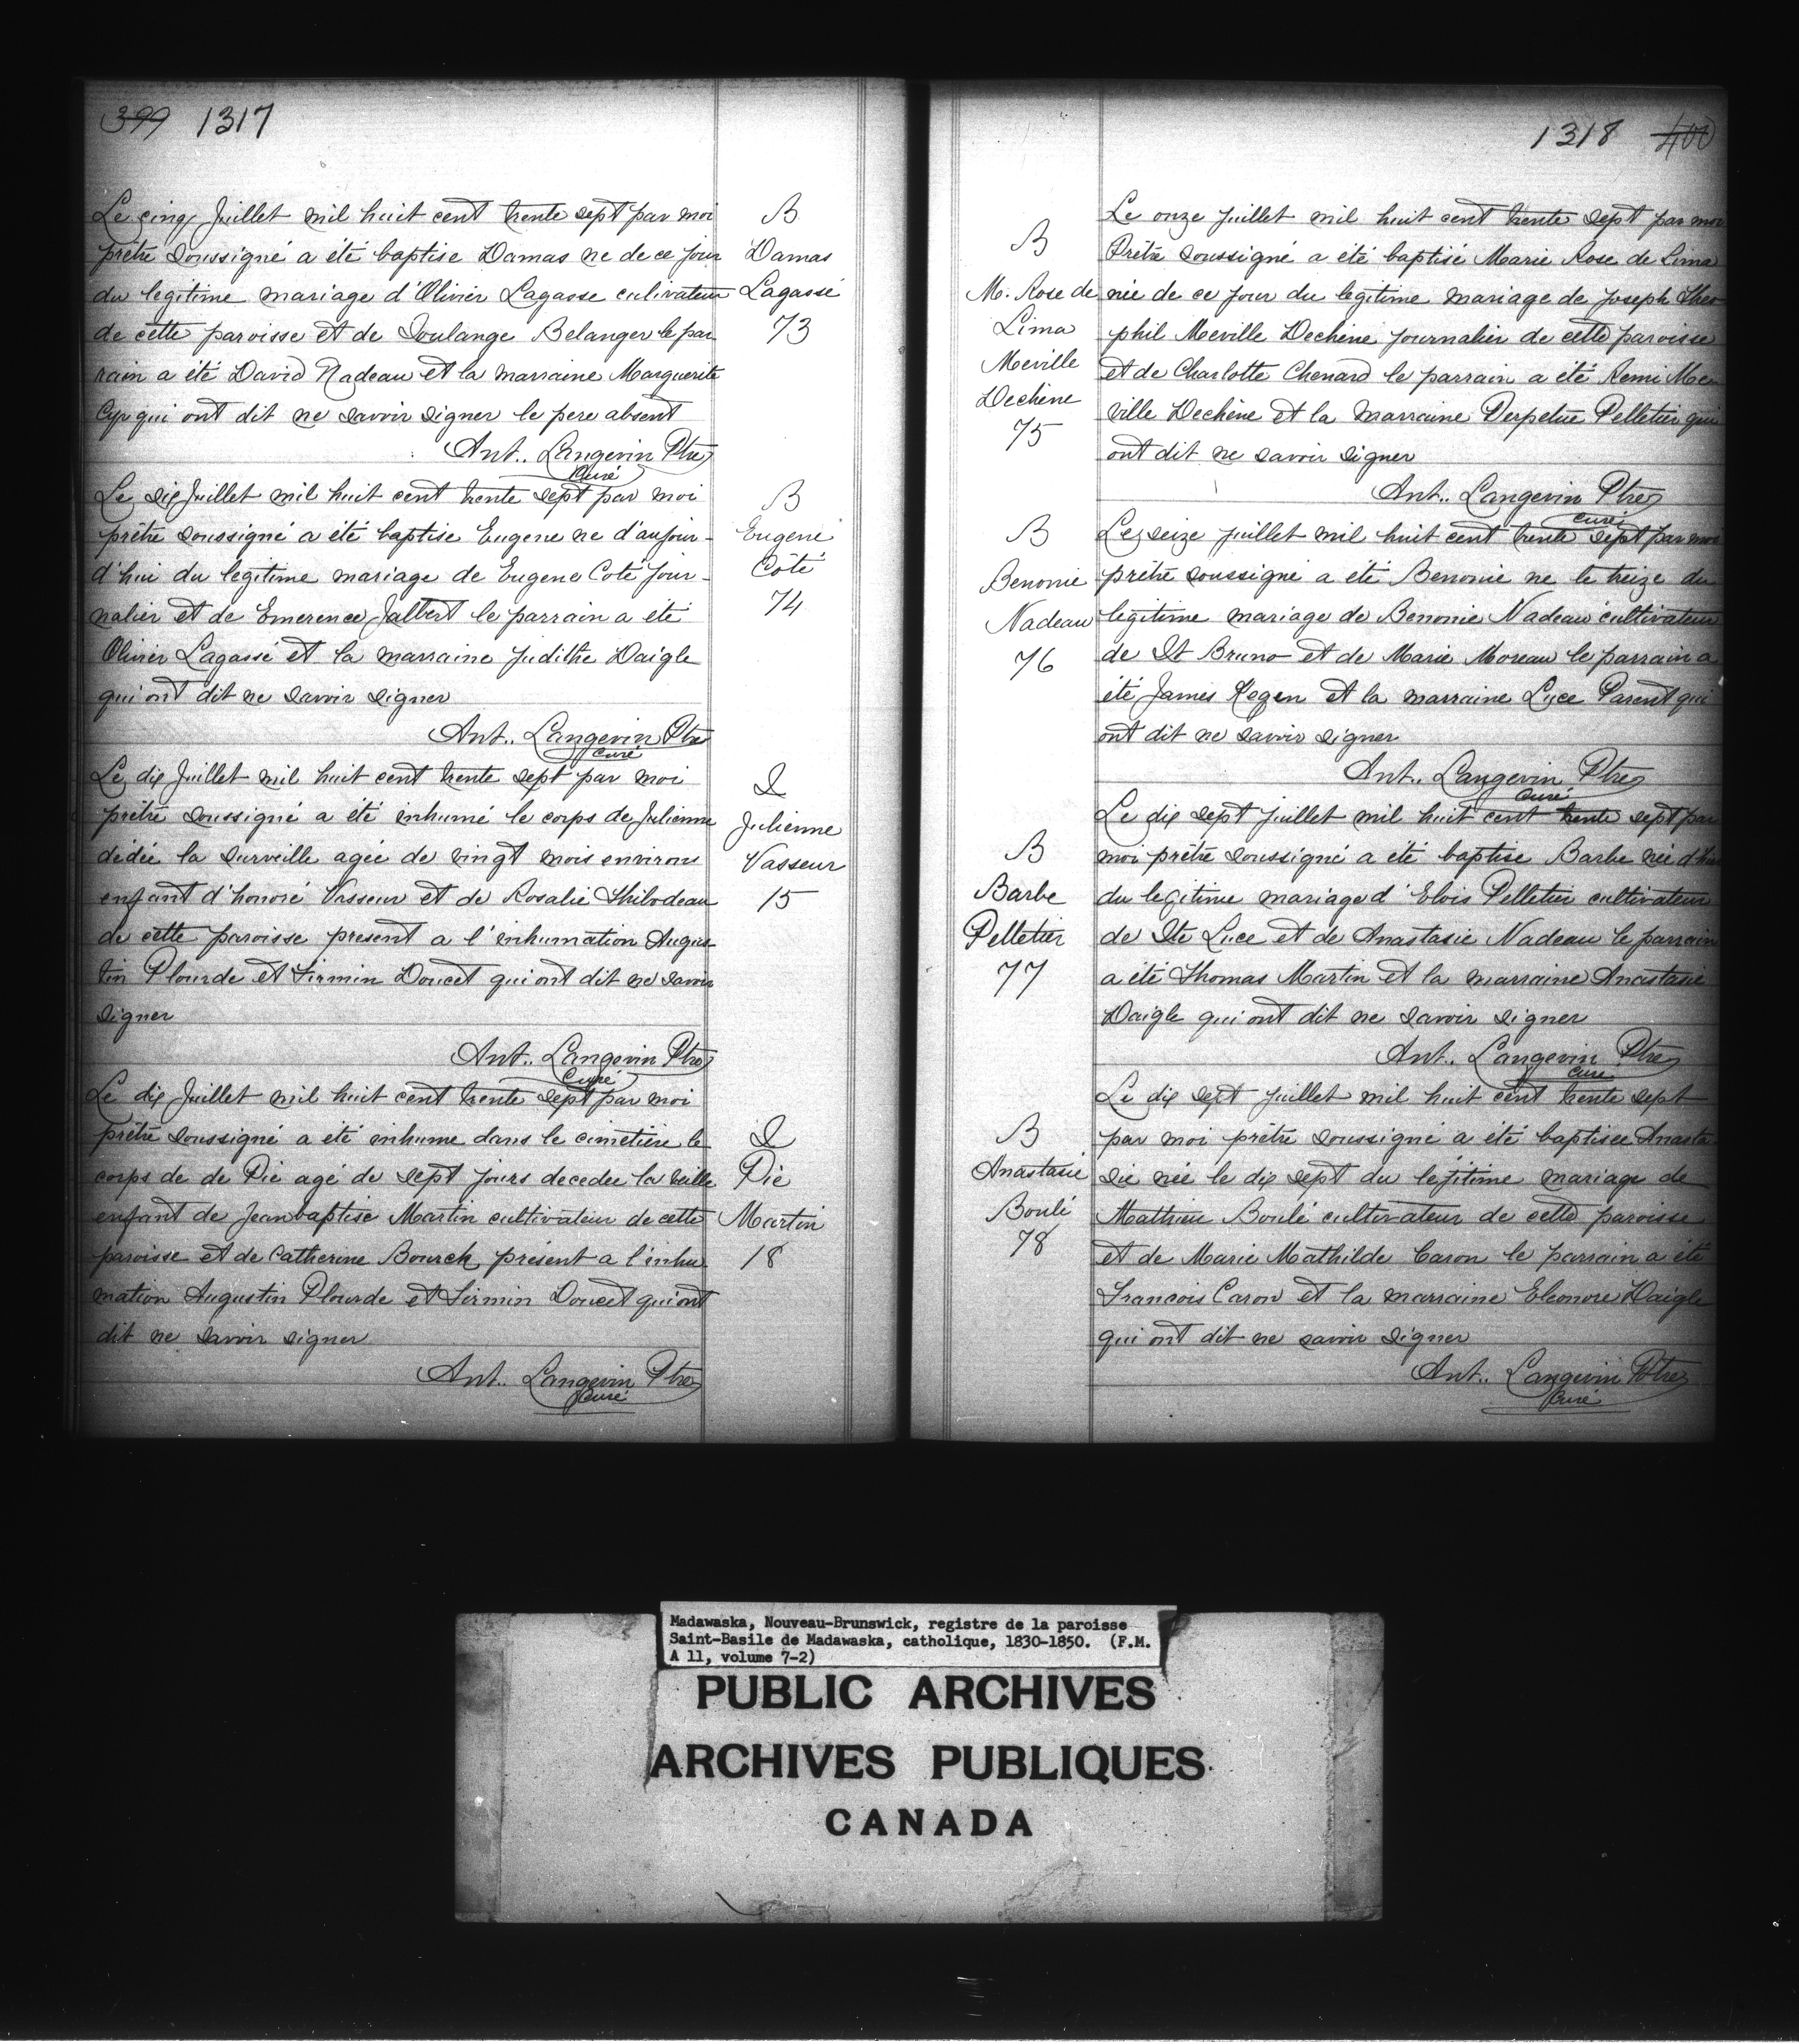 399 1317
Le cinq Juillet mil huit cent trente sept par moi
prêtre soussigné a été baptise Damas ne de ce jour
du legitime mariage d'Olivier Lagasse cultivateur
de cette paroisse et de Soulange Belanger le par
rain a été David Nadeau et la marraine Marguerite
Cyr qui ont dit ne savoir signer le pere absent
Ant.. Langevin Ptre
Curé
B
Damas
Lagassé
73
Le dix Juillet mil huit cent trente sept par moi
prêtre soussigné a été baptise Eugene ne d'aujour-
d'hui du legitime mariage de Eugene Coté jour-
nalier et de Emerence Jalbert le parrain a été
Olivier Lagassé et la marraine Judithe Daigle
qui ont dit ne savoir signer
Ant.. Langevin Ptre
Curé
B
Eugene
Côté
74
Le dix Juillet mil huit cent trente sept par moi
prêtre soussigné a été inhumé le corps de Julienne
dédée la surveille agée de vingt mois environs
enfant d'honoré Vasseur et de Rosalie Thibodeau
de cette paroisse present a l'inhumation Augus-
tin Plourde et Firmin Doucet qui ont dit ne savoir
signer
Ant.. Langevin Ptre
Curé
S
Julienne
Vasseur
15
Le dix Juillet mil huit cent trente sept par moi
prêtre soussigné a été inhume dans le cimetière le
corps de de Pie agé de sept jours decedee la veille
enfant de Jeanbaptise Martin cultivateur de cette
paroisse et de Catherine Bourck présent a l'inhu
mation Augustin Plourde et Firmin Doucet qui ont
dit ne savoir signer
Ant.. Langevin Ptre
Curé
S
Pie
Martin
18
1318 400
Le onze Juillet mil huit cent trente sept par moi
Prêtre soussigné a été baptisé Marie Rose de Lima
née de ce jour du legitime mariage de Joseph Theo
phil Meville Dechène journalier de cette paroisse
et de Charlotte Chenard le parrain a été Remi Me
ville Dechêne et la marraine Perpetue Pelletier qui
ont dit ne savoir signer
Ant.. Langevin Ptre
Curé
B
M. Rose de
Lima
Meville
Dechène
75
Le seize Juillet mil huit cent trente sept par moi
prêtre soussigné a été Benonie ne le treize du
legitime mariage de Benonie Nadeau cultivateur
de St Bruno et de Marie Moreau le parrain a
été James Kegen et la marraine Luce Parent qui
ont dit ne savoir signer
Ant.. Langevin Ptre
Curé
B
Benonie
Nadeau
76
Le dix sept Juillet mil huit cent trente sept par
moi prêtre soussigné a été baptise Barbe née d'hier
du legitime mariage d'Elois Pelletier cultivateur
de Ste Luce et de Anastasie Nadeau le parrain
a été Thomas Martin et la marraine Anastasie
Daigle qui ont dit ne savoir signer
Ant.. Langevin Ptre
Curé
B
Barbe
Pelletier
77
Le dix sept Juillet mil huit cent trente sept
par moi prêtre soussigné a été baptisee Anasta
sie née le dix sept du legitime mariage de
Mathieu Boulé cultivateur de cette paroisse
et de Marie Mathilde Caron le parrain a été
Francois Caron et la marraine Eleonore Daigle
qui ont dit ne savoir signer
Ant.. Langevin Ptre
Curé
B
Anastasie
Boulé
78
Madawaska, Nouveau-Brunswick, registre de la paroisse
Saint-Basile de Madawaska, catholique, 1830-1850. (F.M.
A 11, volume 7-2)
PUBLIC ARCHIVES
ARCHIVES PUBLIQUES
CANADA